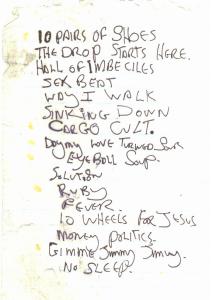 10 PAIRS OF SHOES
THE DROP STARTS HERE.
HALL OF IMBECILES
SEX BEAT
WAY I WALK
SINKING DOWN
CARGO CULT.
LOVE TURNED SOUR
EYEBALL SOUP.
SOLUTION
RUBY
FEVER.
10 WHEELS FOR JESUS
MONEY POLITICS.
GIMME JIMMY JIMMY.
NO SLEEP.